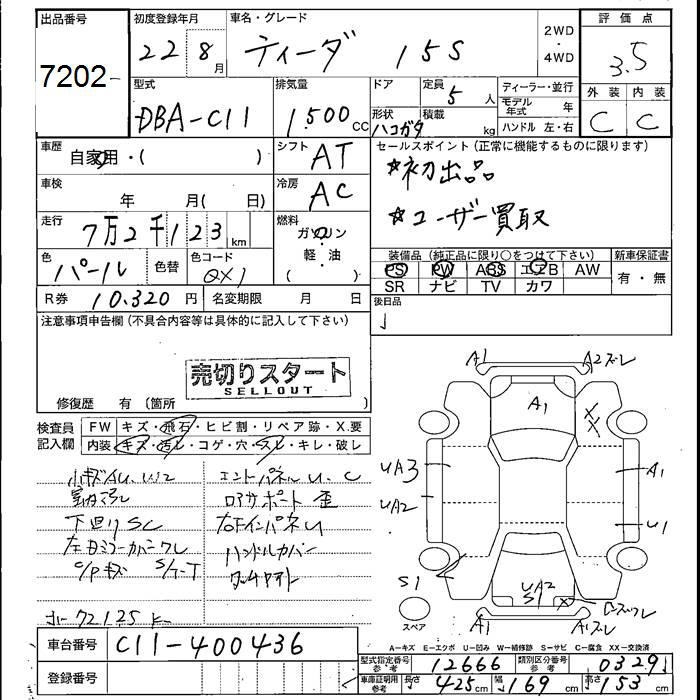 出品番号 初度登録年月 車名・グレード 2WD・4WD 評価点
7202 22 8月 ティーダ 15S 3.5
型式 排気量 ドア 定員 ディーラー・並行 外装 内装
DBA-C11 1,500CC 5人 モデル年式 年 C C
形状 積載 ハンドル 左・右
ハコガタ kg
車歴 自家用・( ) シフト AT セールスポイント(正常に機能するものに限ります)
☆初出品
車検 年 月( 日) 冷房 AC
☆ユーザー買取
走行 7万2千123km 燃料 ガソリン・軽油 ( )
色 パール 色替 色コード QX1
装備品(純正品に限り○をつけて下さい) 新車保証書
PS PW ABS エアB AW 有・無
SR ナビ TV カワ
R券 10,320円 名変期限 月 日 後日品
注意事項申告欄(不具合内容等は具体的に記入して下さい)
売切りスタート
SELLOUT
修復歴 有(箇所
検査員記入欄 FW キズ・飛石・ヒビ割・リペア跡・X.要
内装 キズ・汚レ・コゲ・穴・スレ・キレ・破レ
小キズAU.W2 エンドパネルU.C
ロアサポート歪
下回りSC 右FインパネU
左ドアミラーカバーワレ ハンドルカバー
C/Pキズ S/T-T
A1 A2ズレ
A1
XX
UA3 A1
UA2 U1
S1
UA2
S1 X
A1 A1ズレ
スペア
車台番号 C11-400436
登録番号
A-キズ E-エクボ U-凹み W-補修跡 S-サビ C-腐食 XX-交換済
型式指定番号 参考 12666 類別区分番号 参考 0329
車庫証明用 参考 長さ 425cm 幅 169cm 高さ 153cm